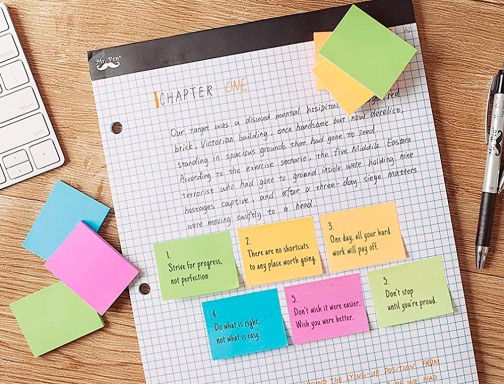 Mr. Pen
CHAPTER ONE
Our target was a disused mental hospital
brick, Victorian building, once handsome but now derelict,
standing in spacious grounds that had gone to seed.
According to the exercise scenario, the five Middle Eastern
terrorist who had gone to ground inside were holding nine
hostages captive, and after a three-day siege matters
were moving swiftly to a head.
1.
Strive for progress,
not perfection
2.
There are no shortcuts
to any place worth going.
3.
One day, all your hard
work will pay off.
4.
Do what is right,
not what is easy.
5.
Don't wish it were easier.
Wish you were better.
5.
Don't stop
until you're proud.
AROUND THE LYING-UP POSITION. FROM
WE HAD